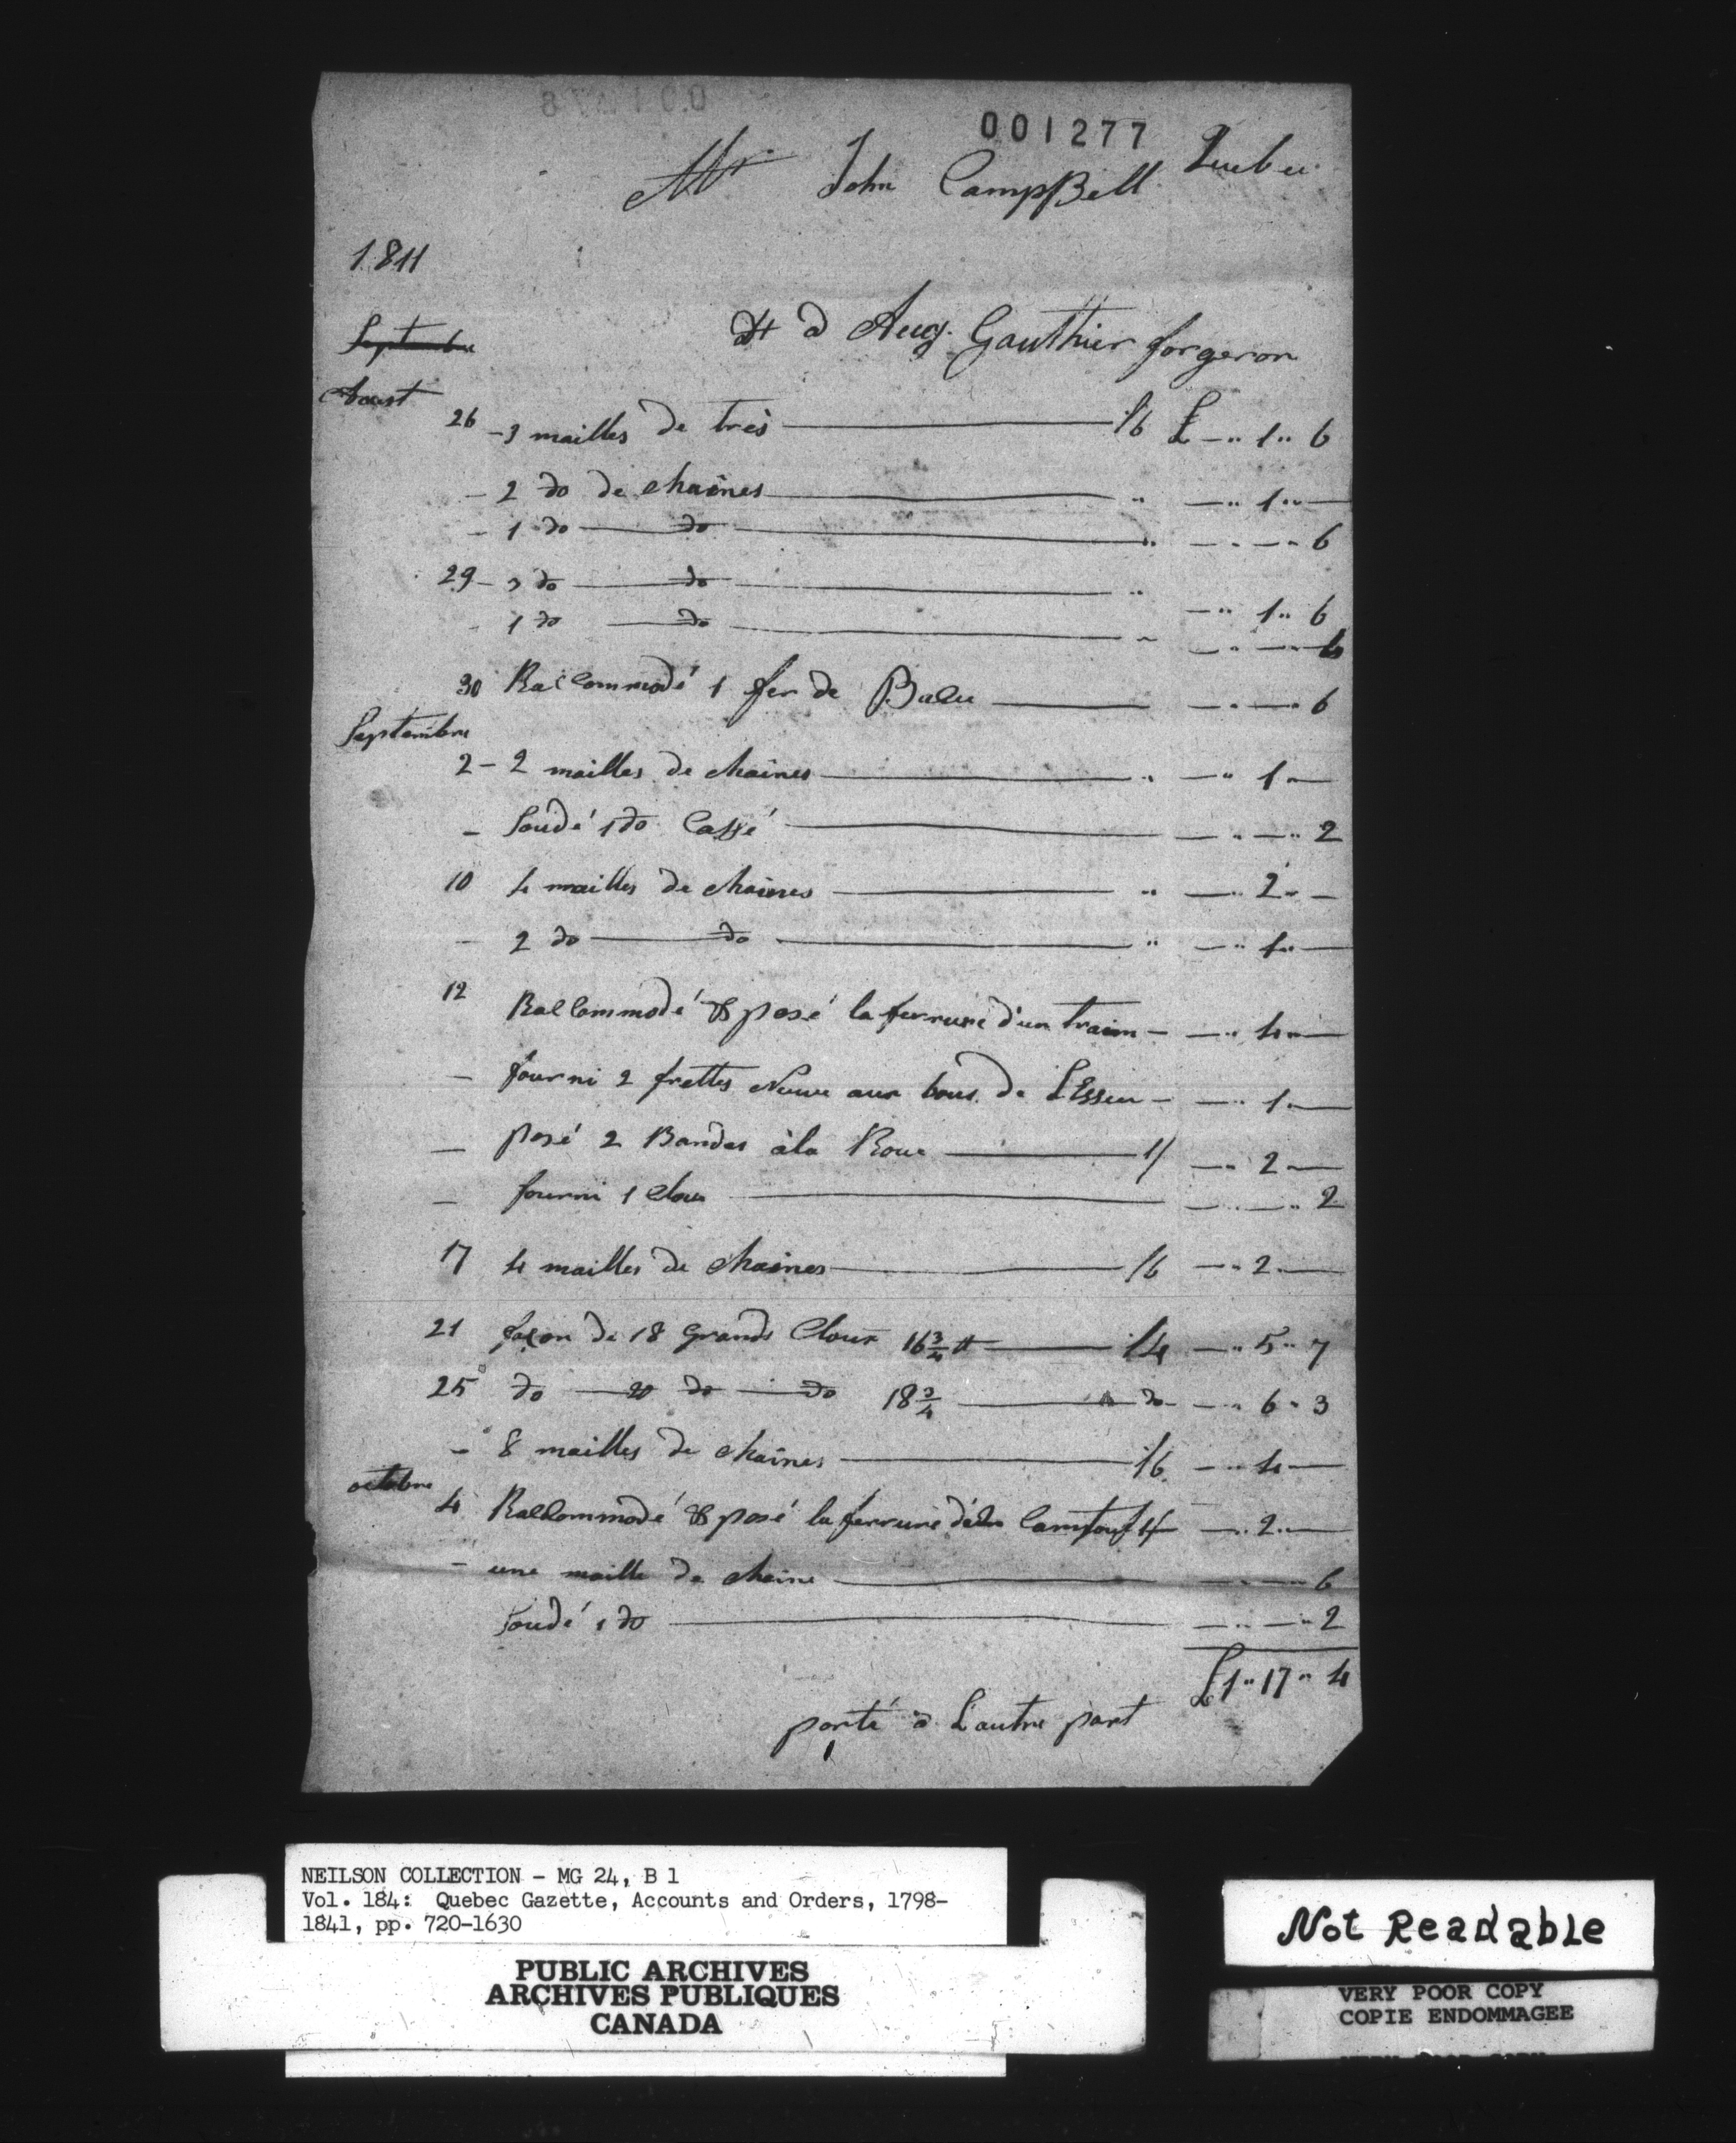 001277
Mr John CampBell Quebec
1811
Septembre
dt à Aug. Gauthier forgeron
Aoust
26 - 3 mailles de très /6 £ - " 1 " 6
- 2 do de chaînes " - " 1 " -
- 1 do do " - " - " 6
29 - 3 do do " - " 1 " 6
- 1 do do " - " - " 6
30 Raccommodé 1 fer de - " - " 6
Septembre
2 - 2 mailles de chaines " - " 1 " -
- Soudé 1 do Cassé - " - " 2
10 4 mailles de chaînes " - " 2 " -
- 2 do do " - " 1 " -
12 Raccommodé & posé la ferrure d'un train - - " 4 " -
- fourni 2 frettes Neuve aux bous de L'Essieu - - " 1 " -
- posé 2 Bandes à la Roue 1/ - " 2 " -
- fourni 1 Clou - " - " 2
17 4 mailles de chaines /6 - " 2 " -
21 façon de 18 grands Cloux 16 3/4 lb /4 - " 5 " 7
25 do 20 do do 18 3/4 à do - " 6 " 3
- 8 mailles de chaînes /6 - " 4 " -
octobre
4 Raccommodé & posé la ferrure - " 2 " -
- une maille de chaine - " - " 6
Soudé 1 do - " - " 2
£1 " 17 " 4
porté à L'autre part
NEILSON COLLECTION - MG 24, B 1
Vol. 184: Quebec Gazette, Accounts and Orders, 1798-
1841, pp. 720-1630
PUBLIC ARCHIVES
ARCHIVES PUBLIQUES
CANADA
Not Readable
VERY POOR COPY
COPIE ENDOMMAGEE